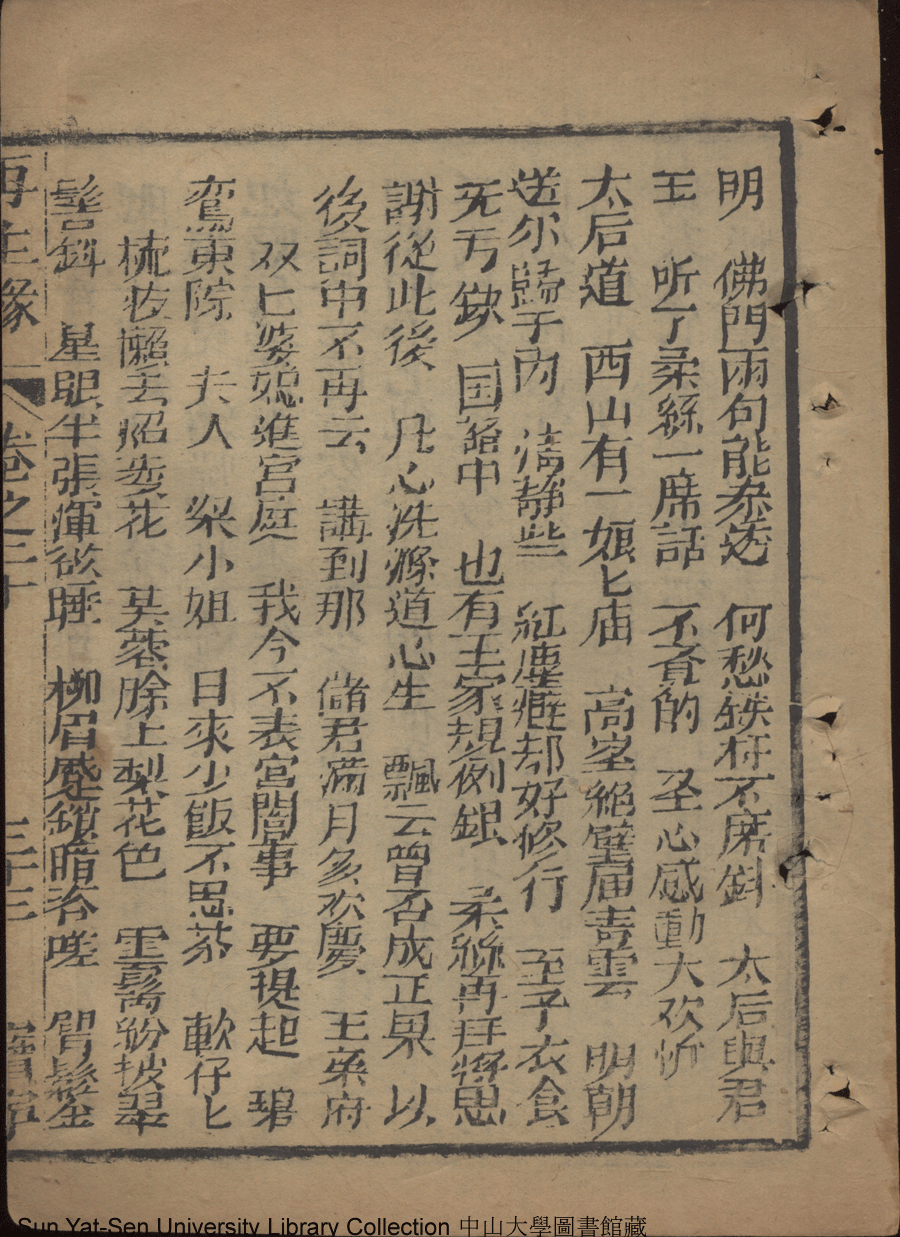 明 佛門兩句能參透 何愁鉄杵不磨斜 太后與君
王 听了柔絲一席話 不責的 圣心感動大欢忻
太后道 西山有一娘匕庙 高峯絕壁届青雲 明朝
送尔歸于內 清静些 紅塵避却好修行 至于衣食
无亏缺 国爺中 也有王家規例銀 柔絲再拜將恩
謝從此後 凡心洗滌道心生 飄云曾否成正果 以
後詞中不再云 講到那 儲君滿月多欢慶 王藥府
双匕婆媳進宮庭 我今不表宮闈事 要提起 琯
鸞東院 夫人 梁小姐 日來少飯不思茶 軟仔匕
梳妝懶去照奏花 芙蓉臉上梨花色 雲鬟紛披翠
髻斜 星眼半張渾欲睡 柳眉蹙鎖暗咨嗟 肩鬆金
再生缘 卷之二十 三十三
Sun Yat-Sen University Library Collection 中山大學圖書館藏